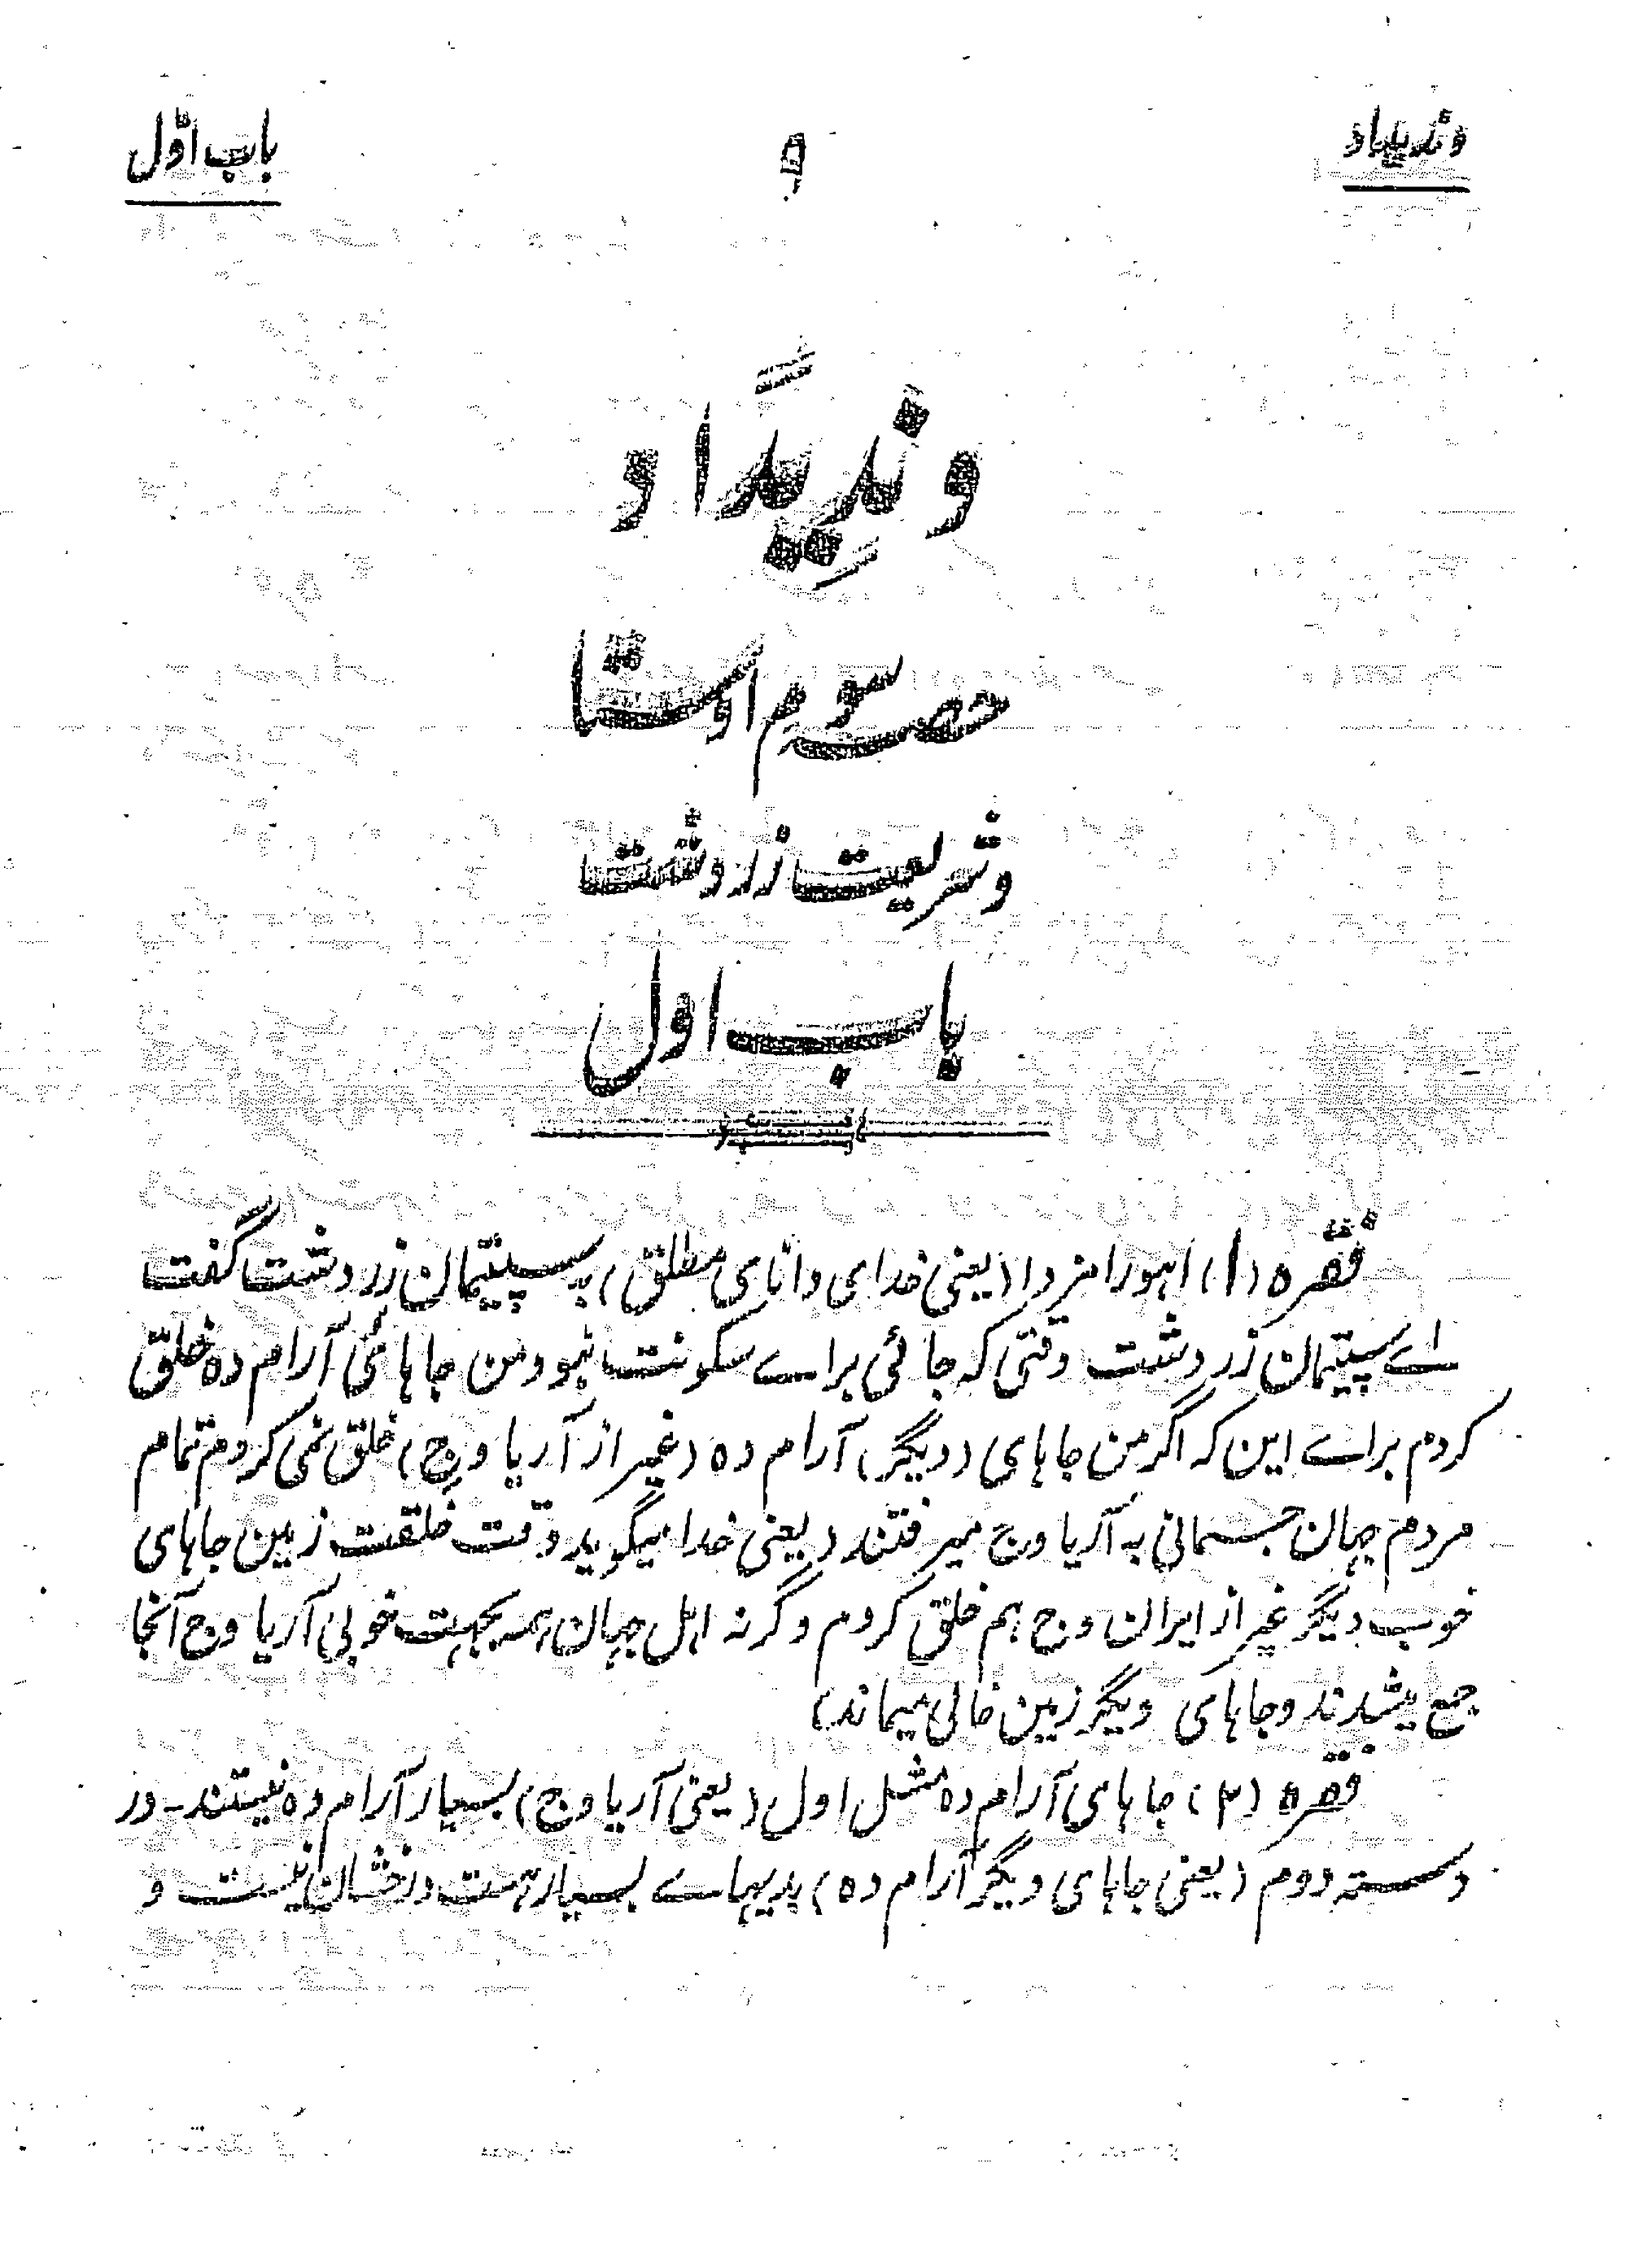 وندیداد
۹
باب اوّل
وندیداد
حصهٔ سوم اوستا
و شریعت زردشت
باب اول
فقره (۱) اهورامزدا (یعنی خدای دانای مطلق) به سپیتمان زردشت گفت
اے سپیتمان زردشت وقتی که جائی براے سکونت نبود من جاهائی آرام ده خلق
کردم براے این که اگر من جاهای (دیگر) آرام ده (غیر از آریا وج) خلق نمی کردم تمام
مردم جهان جسمانی به آریا وج میرفتند (یعنی خدا میگوید وقت خلقت زمین جاهای
خوب دیگر غیر از ایران وج هم خلق کردم وگرنه اهل جهان همه بجهت خوبی آریا وج آنجا
جمع میشدند و جاهای دیگر زمین خالی میماند)
فقره (۲) جاهای آرام ده مثل اول (یعنی آریا وج) بسیار آرام ده نیستند - در
دسته دوم (یعنی جاهای دیگر آرام ده) بدیهاے بسیار هست درخشان نیست و